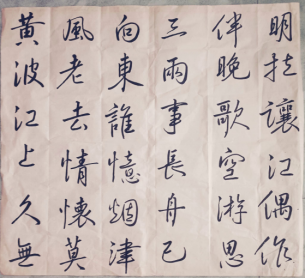 明挂讓江偶作
伴晚歌空游思
三兩事長舟已
向東誰憶烟津
風老去情懷莫
黃波江上久無